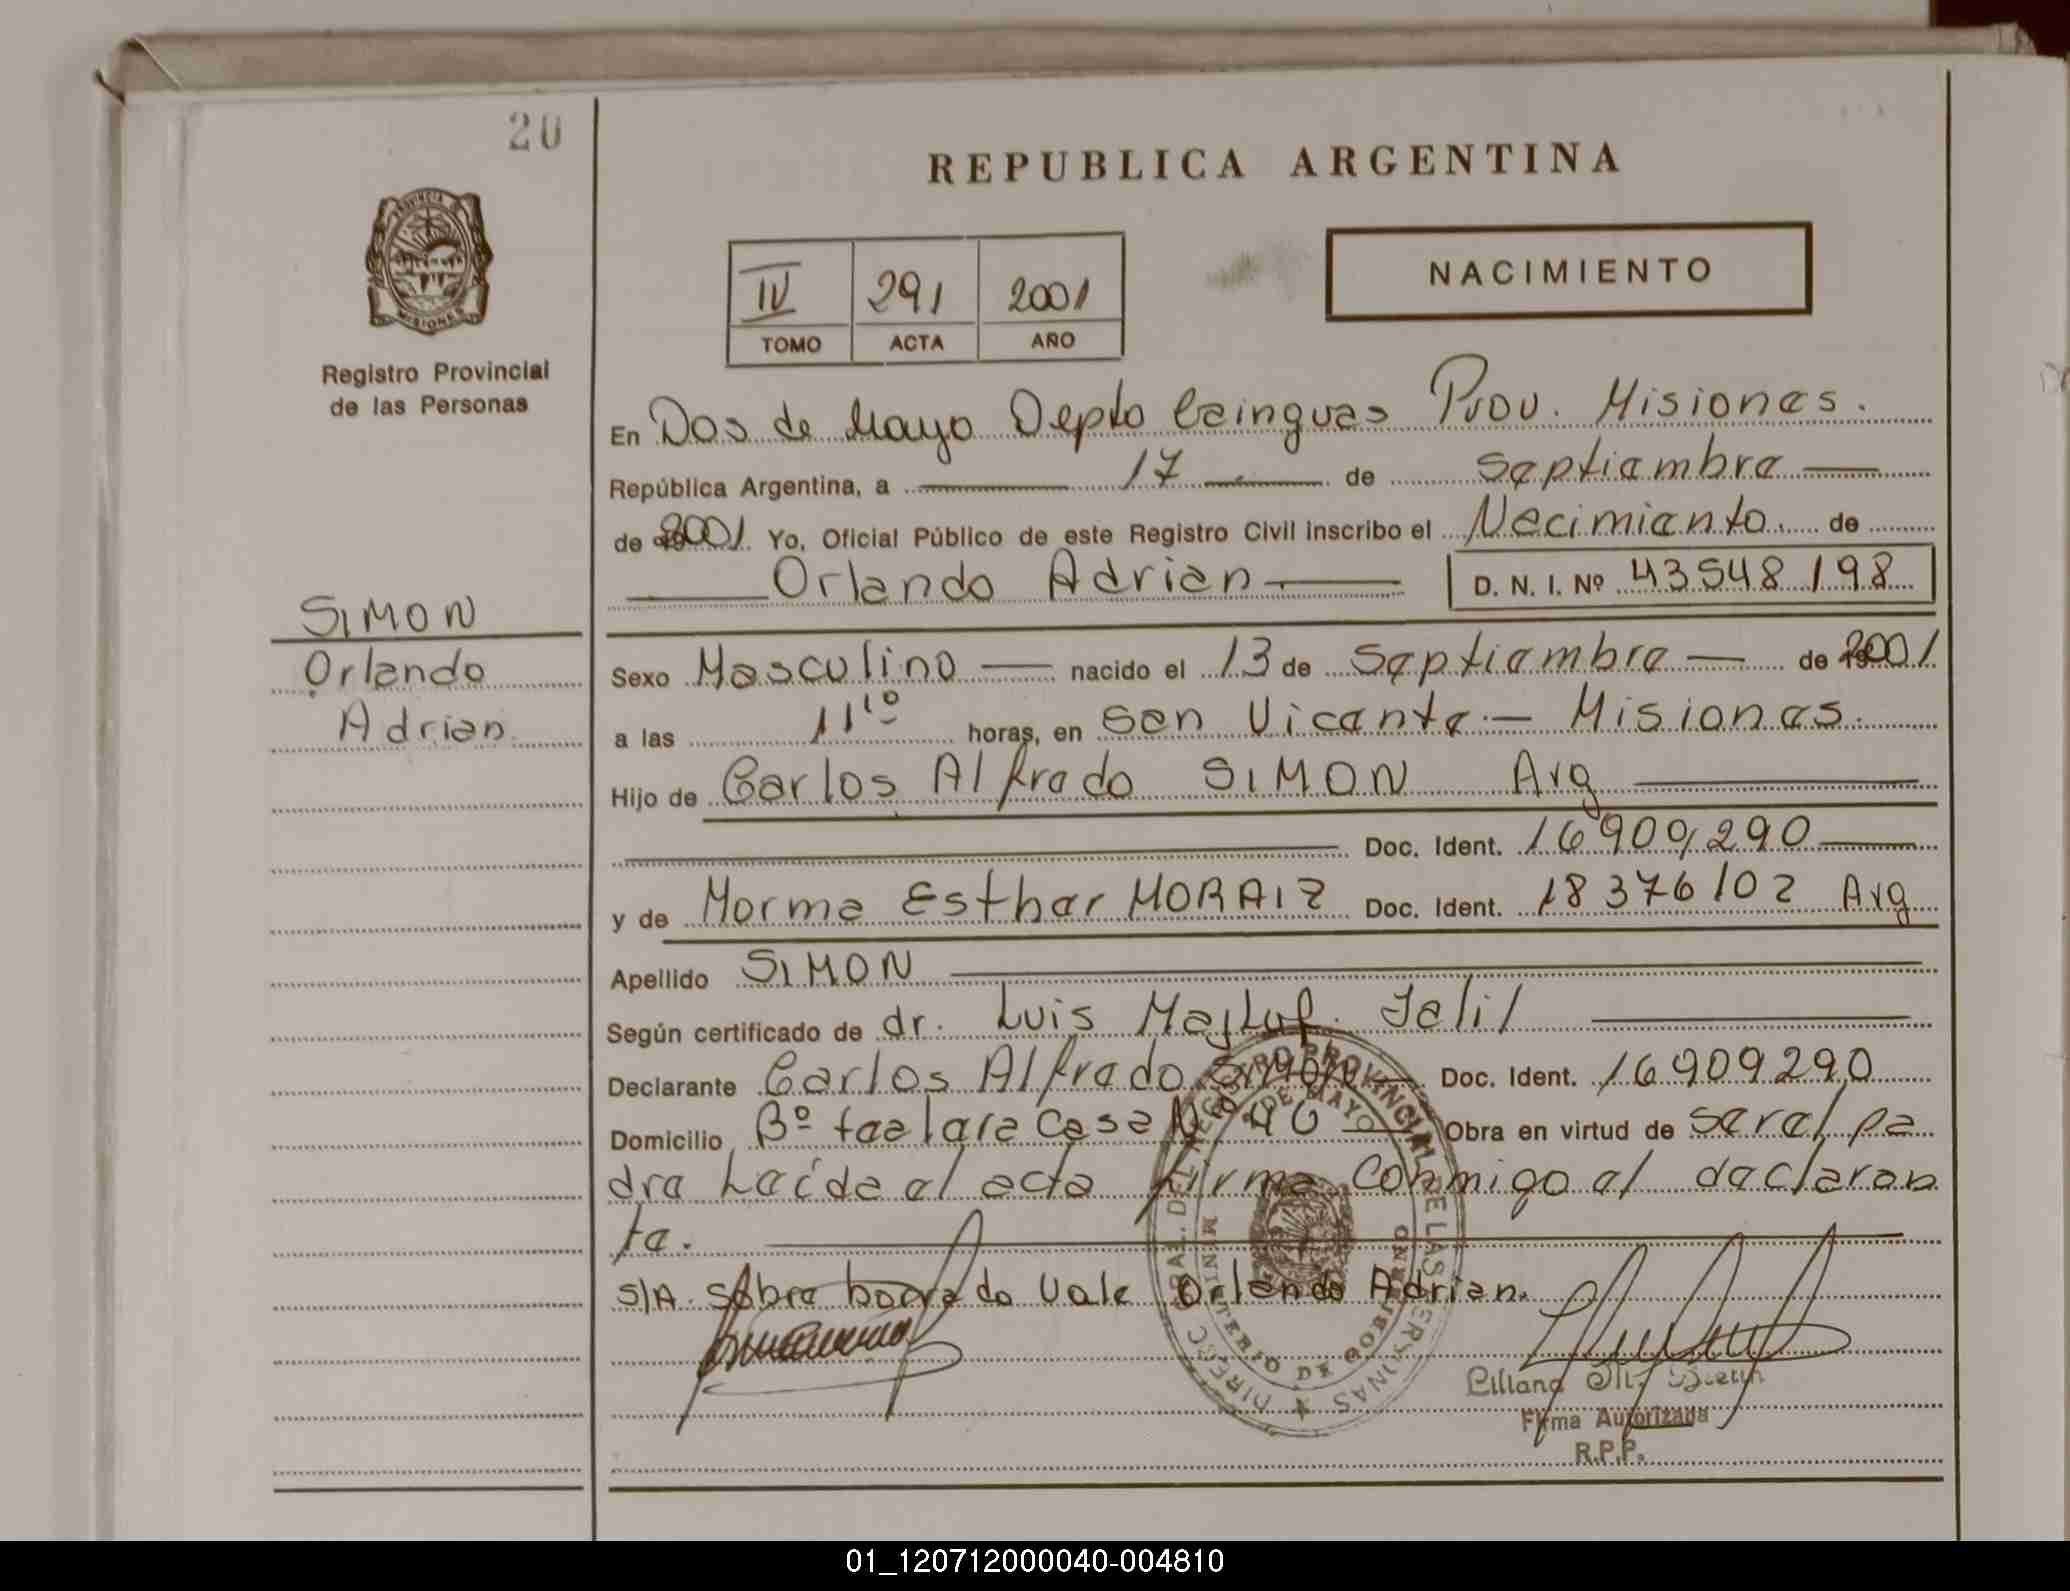 20
REPUBLICA ARGENTINA
PROVINCIA DE
MISIONES
Registro Provincial
de las Personas
IV 291 2001
TOMO ACTA AÑO
NACIMIENTO
En Dos de Mayo Depto Cainguas Prov. Misiones.
República Argentina, a 17 de septiembre
de 2001 Yo, Oficial Público de este Registro Civil inscribo el Nacimiento de
Orlando Adrian D. N. I. Nº 43548198
SIMON
Orlando
Adrian
Sexo Masculino nacido el 13 de septiembre de 2001
a las 11 10 horas, en San Vicente - Misiones.
Hijo de Carlos Alfredo SIMON Arg
Doc. Ident. 16909290
y de Norma Esther MORAIZ Doc. Ident. 18376102 Arg
Apellido SIMON
Según certificado de dr. Luis Majluf Jalil
Declarante Carlos Alfredo Simon Doc. Ident. 16909290
Domicilio Bº Casa Nº 40 Obra en virtud de ser el pa
dre Leída el acta firma conmigo el declaran
te.
S/A sobre borrado vale Orlando Adrian.
DIRECC. GRAL. DEL REGISTRO PROVINCIAL DE LAS PERSONAS
2 DE MAYO
MINISTERIO DE GOBIERNO
Liliana
Firma Autorizada
R.P.P.
01_120712000040-004810